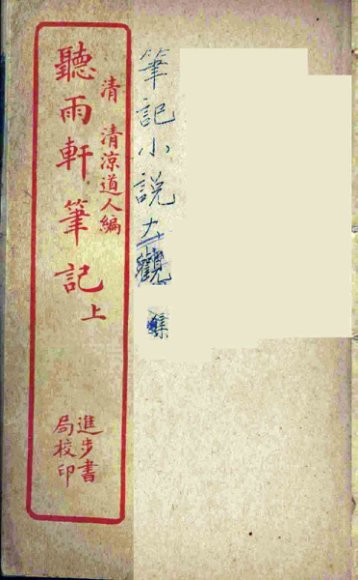 筆記小説大觀
清 清涼道人編
聽雨軒筆記上
進步書
局校印